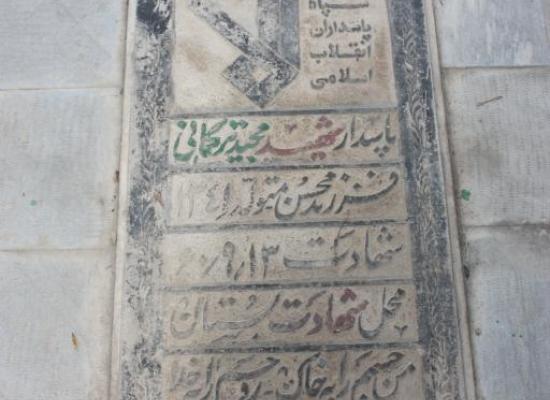 سپاه
پاسداران
انقلاب
اسلامی
پاسدار شهید مجید ترکمانی
فرزند محسن متولد ۱۳۴۱
شهادت ۶۰/۹/۱۳
محل شهادت بستان
من جسم را به خاک